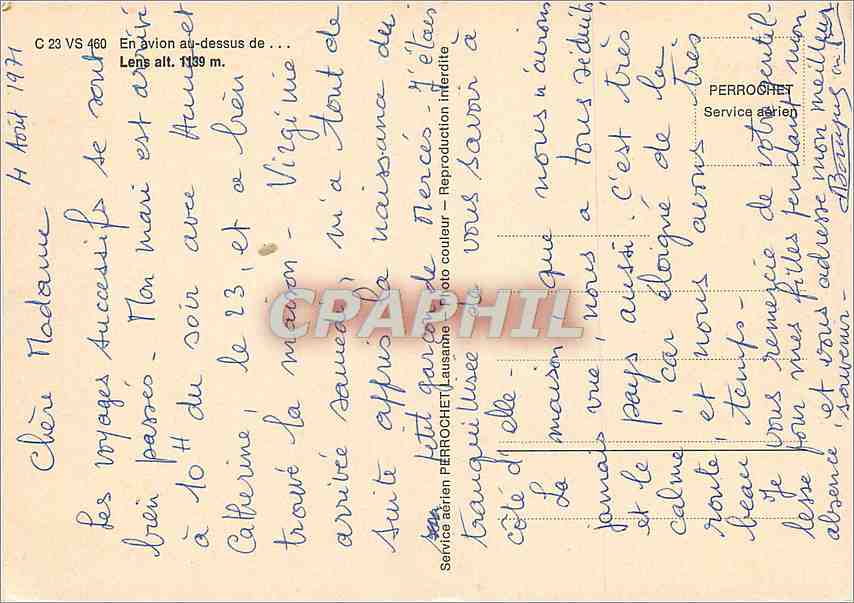 C 23 VS 460 En avion au-dessus de . . .
Lens alt. 1139 m.
PERROCHET
Service aérien
Service aérien PERROCHET Lausanne – Photo couleur – Reproduction interdite
CPAPHIL
4 Août 1971
Chère Madame
Les voyages successifs se sont
bien passés - Mon mari est arrivé
à 10 H du soir avec Anne et
Catherine, le 23, et a bien
trouvé la maison - Virginie
arrivée samedi, m'a tout de
suite appris la naissance du
petit garçon de Mercés - J'étais
tranquillisée de vous savoir à
côté d'elle -
La maison, que nous n'avions
jamais vue, nous a tous séduits
et le pays aussi. C'est très
calme, car éloigné de la
route, et nous avons très
beau temps -
Je vous remercie de votre gentil-
lesse pour mes filles pendant mon
absence, et vous adresse mon meilleur
souvenir -